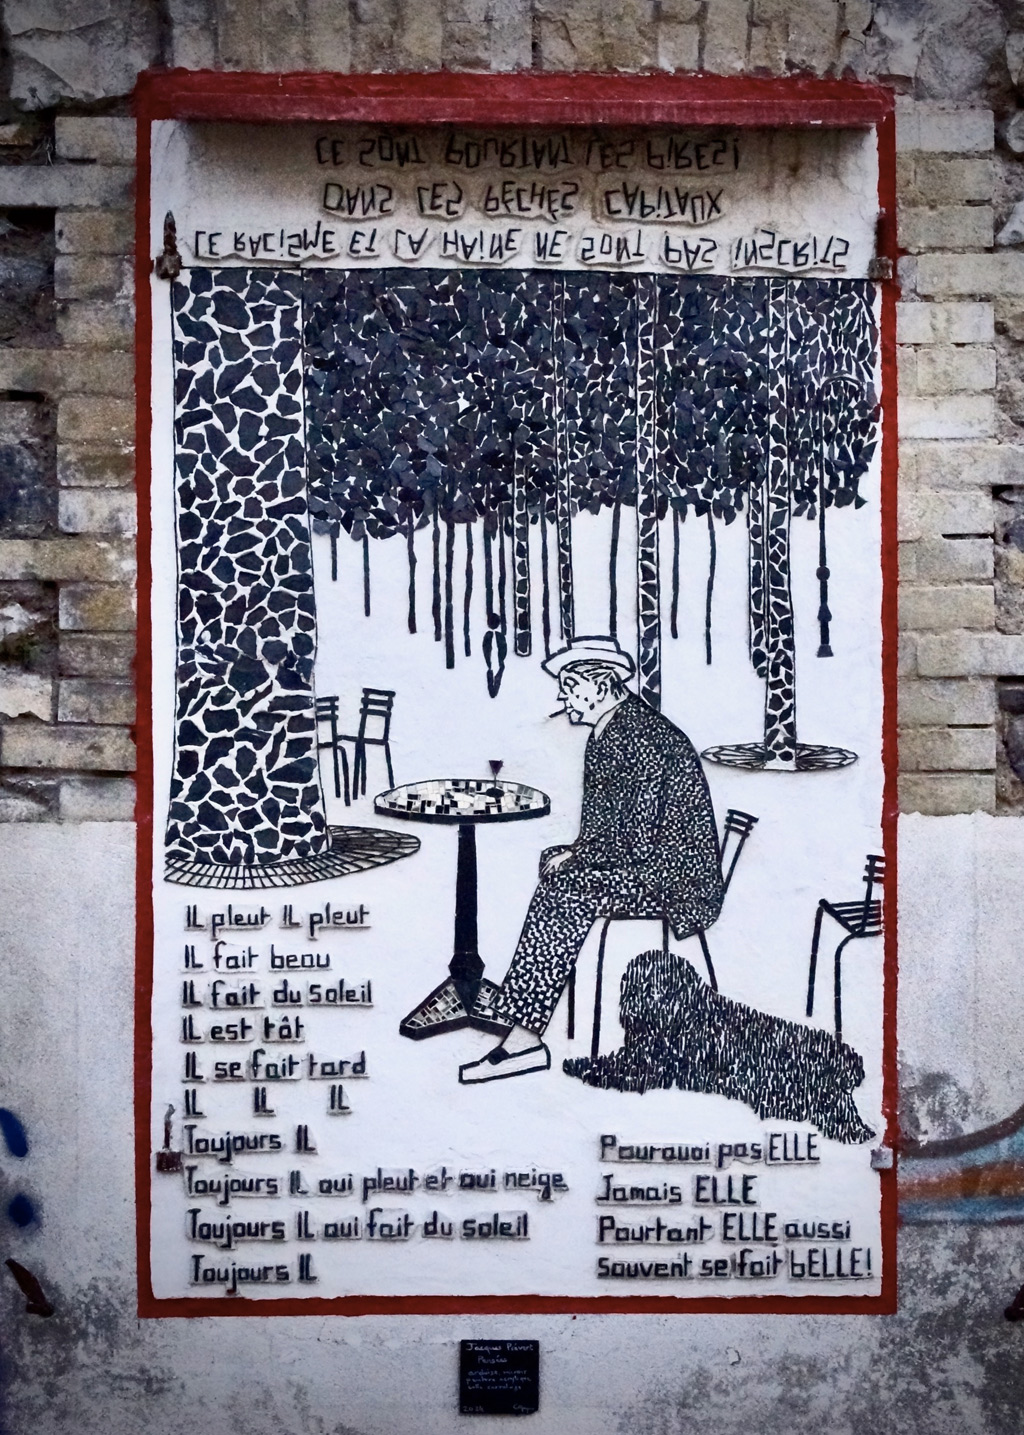 LE RACiSME ET LA HAiNE NE SONT PAS iNSCRiTS
DANS LES PECHÉS CAPiTAUX
CE SONT POURTANT LES PiRES!
IL pleut IL pleut
IL fait beau
IL fait du soleil
IL est tôt
IL se fait tard
IL IL IL
Toujours IL
Toujours IL qui pleut et qui neige
Toujours IL qui fait du soleil
Toujours IL
Pourquoi pas ELLE
Jamais ELLE
Pourtant ELLE aussi
souvent se fait bELLE!
Jacques Prévert